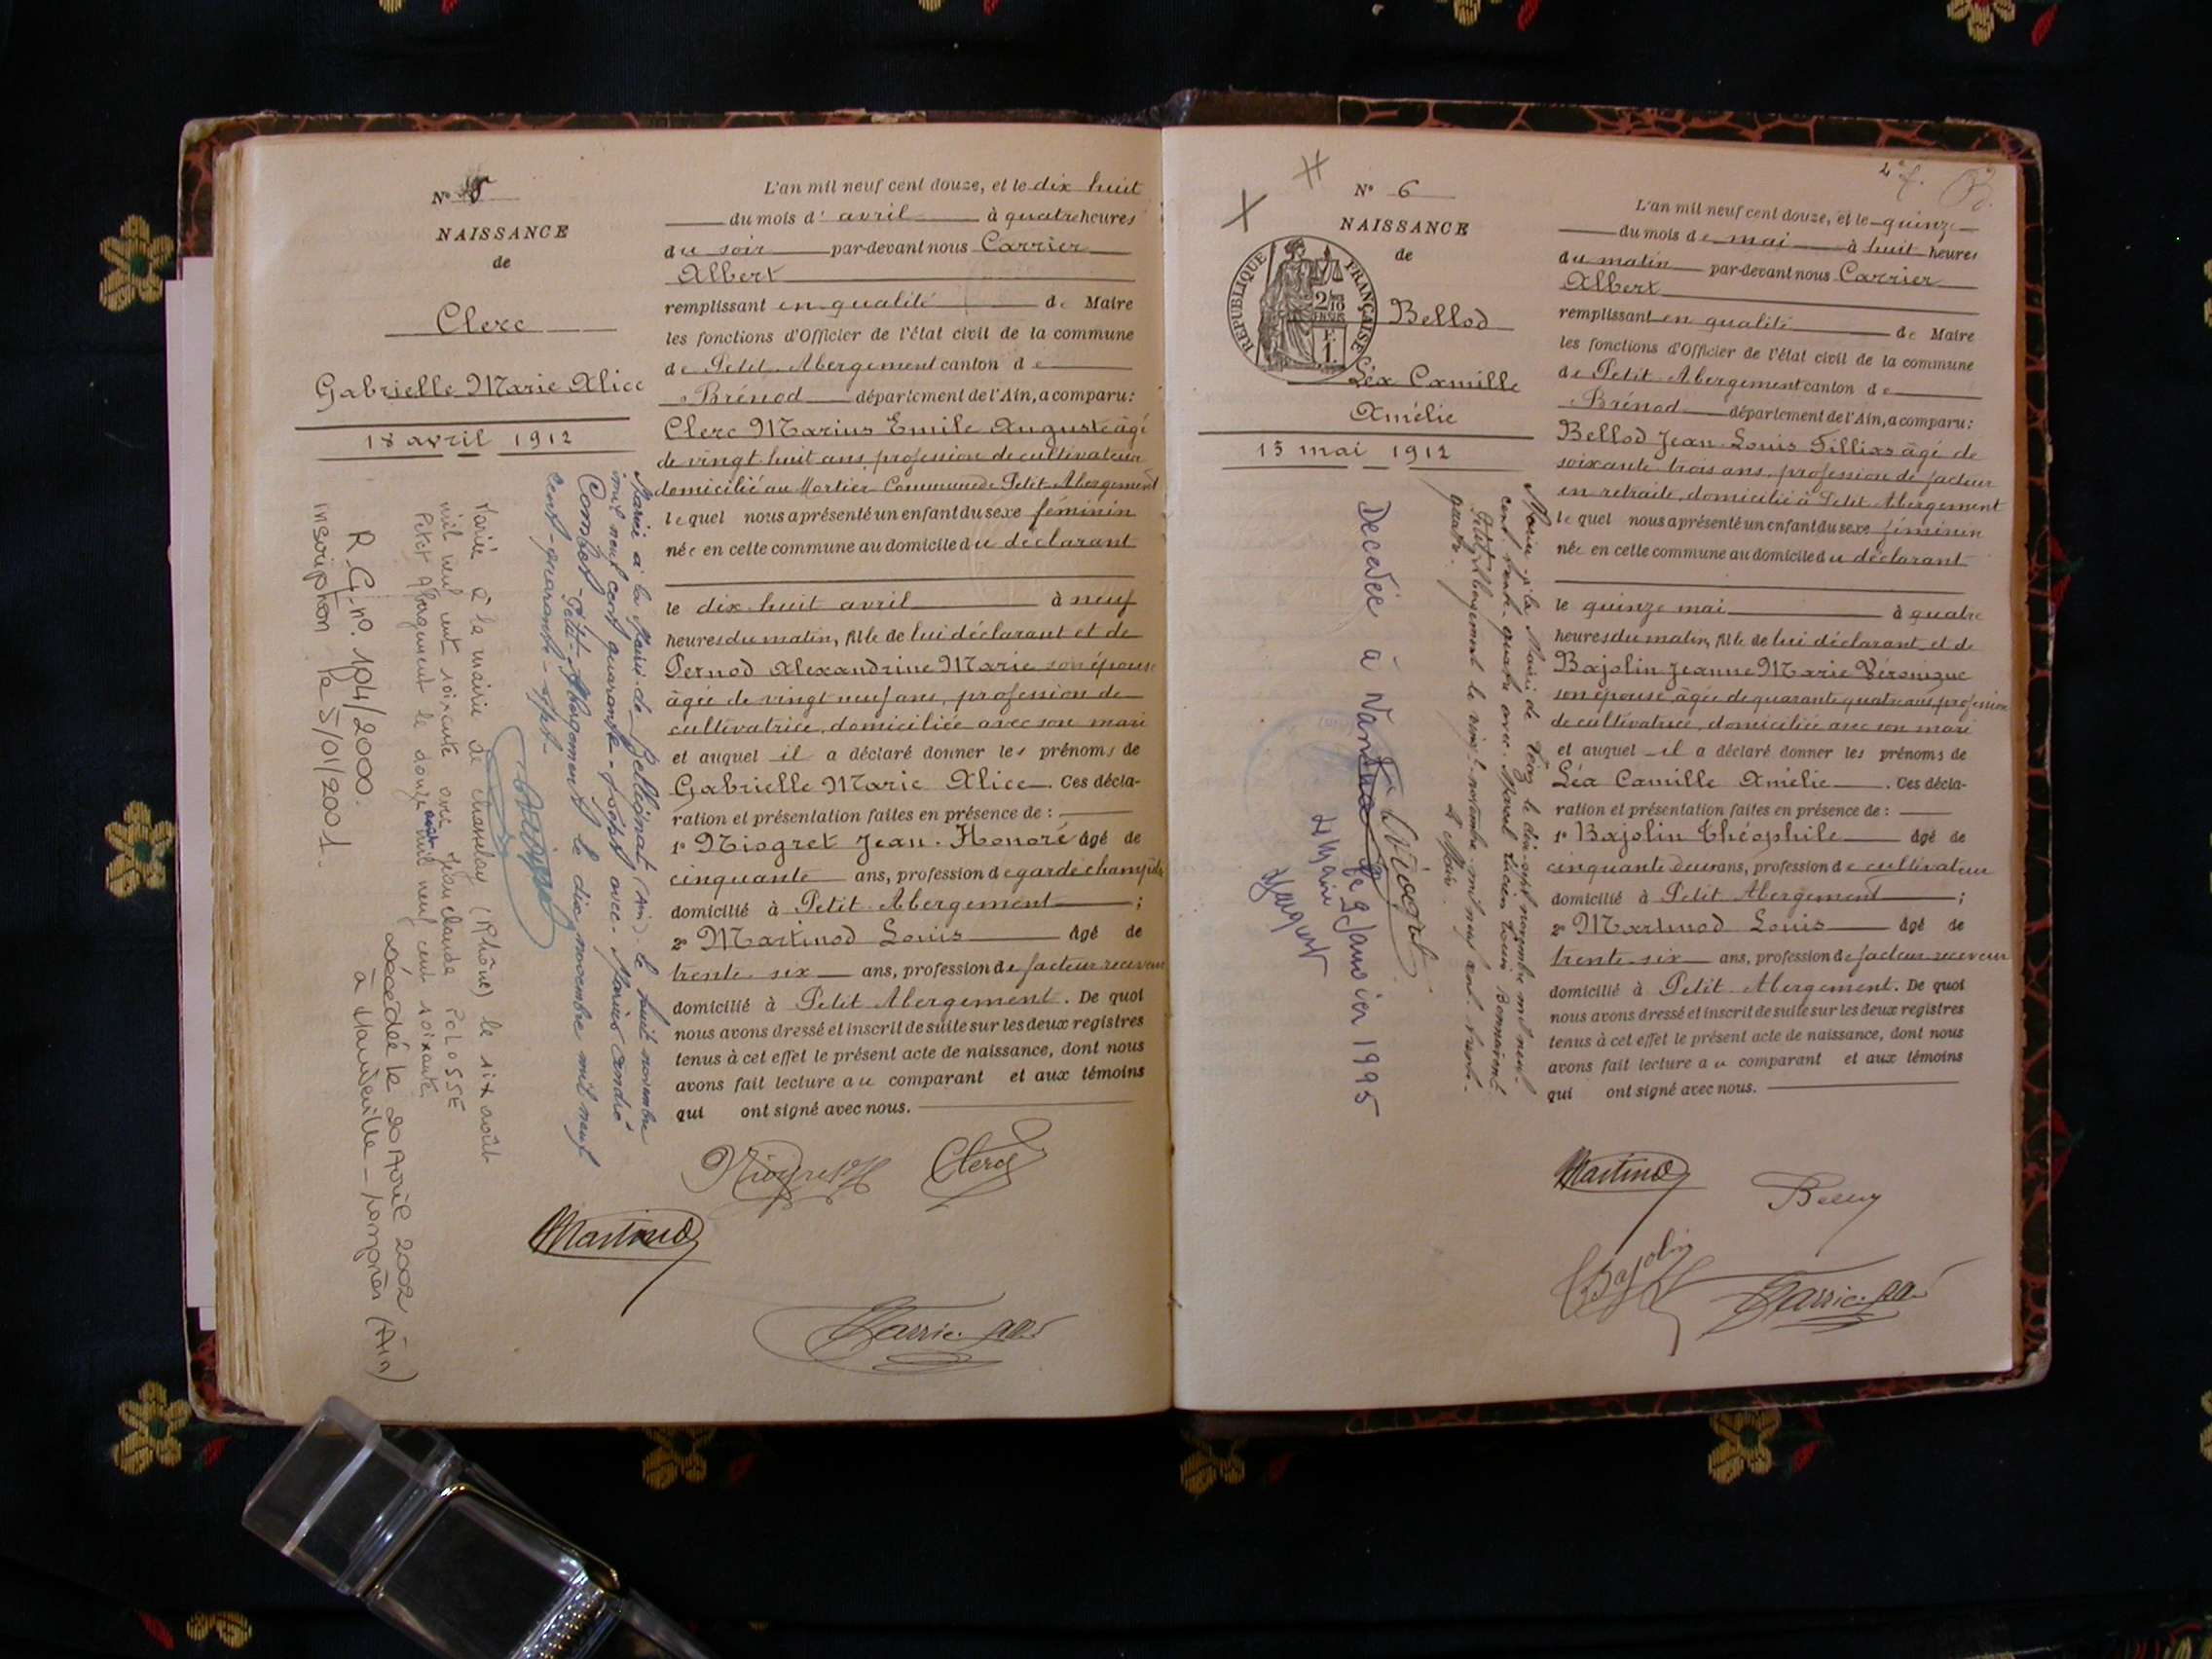 N° 5
NAISSANCE
de
Clerc
Gabrielle Marie Alice
18 avril 1912
L'an mil neuf cent douze, et le dix huit
du mois d' avril à quatre heures
du soir par-devant nous Carrier
Albert
remplissant en qualité de Maire
les fonctions d'Officier de l'état civil de la commune
de Petit Abergement canton de
Brénod département de l'Ain, a comparu:
Clerc Marius Emile Auguste âgé
de vingt huit ans, profession de cultivateur
domicilié au Mortier Commune de Petit Abergement
lequel nous a présenté un enfant du sexe féminin
née en cette commune au domicile du déclarant
le dix huit avril à neuf
heures du matin, fille de lui déclarant et de
Pernod Alexandrine Marie son épouse
âgée de vingt neuf ans, profession de
cultivatrice, domiciliée avec son mari
et auquel il a déclaré donner les prénoms de
Gabrielle Marie Alice. Ces décla-
ration et présentation faites en présence de :
1° Niogret Jean-Honoré âgé de
cinquante ans, profession de garde champêtre
domicilié à Petit Abergement ;
2° Martinod Louis âgé de
trente-six ans, profession de facteur receveur
domicilié à Petit Abergement. De quoi
nous avons dressé et inscrit de suite sur les deux registres
tenus à cet effet le présent acte de naissance, dont nous
avons fait lecture au comparant et aux témoins
qui ont signé avec nous.
Niogret JH Clerc
Martinod
Mariée à la Mairie de Bellignat (Ain) le huit novembre
mil neuf cent quarante-sept avec Marius André
Combet - Petit-Abergement le dix novembre mil neuf
cent-quarante-sept-
Mariée à la mairie de Chasselay (Rhône) le six août
mil neuf cent soixante avec Jean Claude PELOSSE
Petit Abergement le douze août mil neuf cent soixante
Décédée le 20 Avril 2002
à Hauteville-Lompnes (Ain)
R.G. n°. 104/2000.
inscription le 5/01/2001.
N° 6
NAISSANCE
de
RÉPUBLIQUE FRANÇAISE
Bellod
Léa Camille
Amélie
15 mai 1912
L'an mil neuf cent douze, et le quinze
du mois de mai à huit heures
du matin par-devant nous Carrier
Albert
remplissant en qualité de Maire
les fonctions d'Officier de l'état civil de la commune
de Petit Abergement canton de
Brénod département de l'Ain, a comparu:
Bellod Jean Louis âgé de
soixante trois ans, profession de facteur
en retraite, domicilié à Petit Abergement
lequel nous a présenté un enfant du sexe féminin
née en cette commune au domicile du déclarant
le quinze mai à quatre
heures du matin, fille de lui déclarant et de
Bajolin Jeanne Marie Véronique
son épouse âgée de quarante quatre ans, profession
de cultivatrice, domiciliée avec son mari
et auquel il a déclaré donner les prénoms de
Léa Camille Amélie. Ces décla-
ration et présentation faites en présence de :
1° Bajolin Théophile âgé de
cinquante deux ans, profession de cultivateur
domicilié à Petit Abergement ;
2° Martinod Louis âgé de
trente-six ans, profession de facteur receveur
domicilié à Petit Abergement. De quoi
nous avons dressé et inscrit de suite sur les deux registres
tenus à cet effet le présent acte de naissance, dont nous
avons fait lecture au comparant et aux témoins
qui ont signé avec nous.
Martinod
Bajolin
Mariée à la Mairie de le dix-sept novembre mil neuf-
cent trente-quatre avec Marcel Lucien Louis
Petit Abergement le vingt-novembre mil neuf cent trente-
quatre. Le Maire.
Décédée à Nantua le 9 Janvier 1995